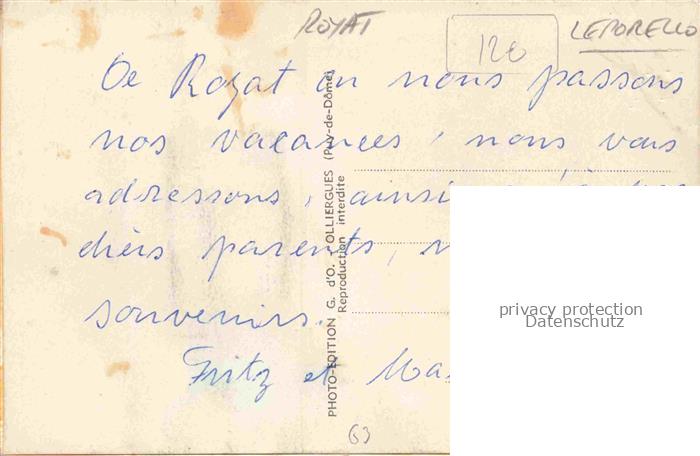 ROYAT
LEPORELLO
120
De Royat ou nous passons
nos vacances, nous vous
adressons, ainsi
chers parents,
souvenirs.
Fritz et
PHOTO-EDITION G. d'O. - OLLIERGUES (Puy-de-Dôme)
Reproduction interdite
63
privacy protection
Datenschutz